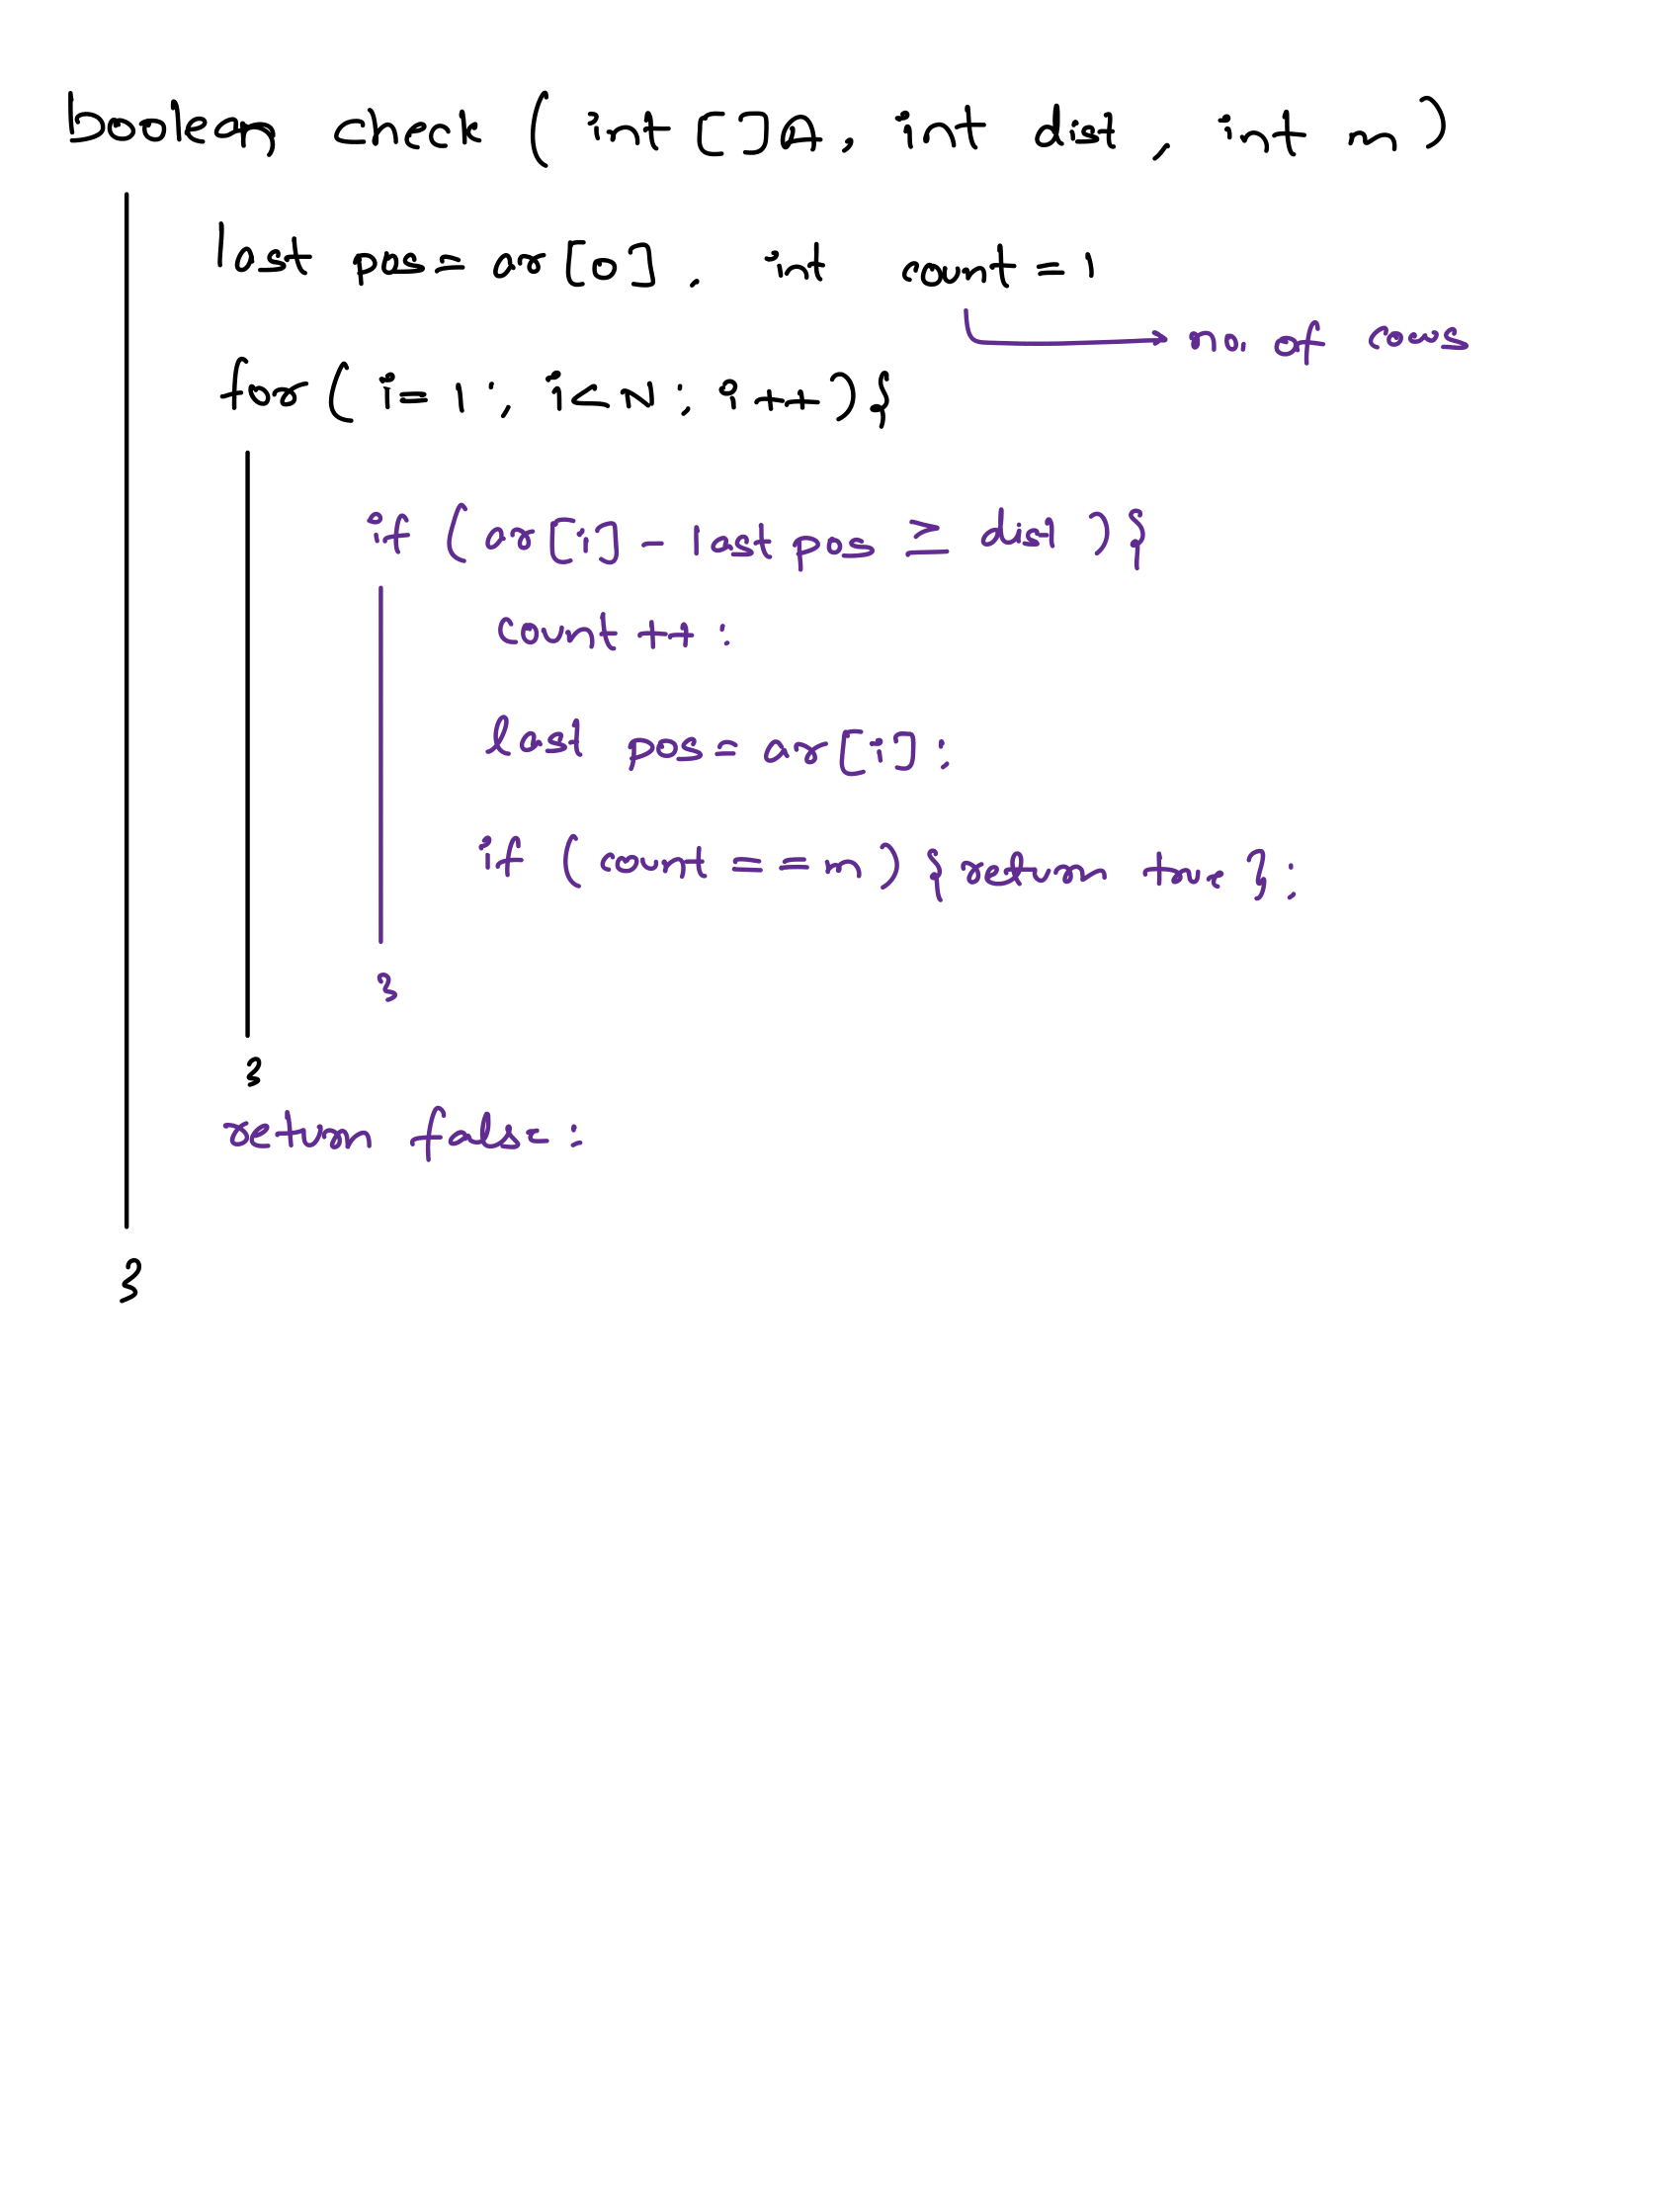 boolean check ( int []A, int dist , int m )
last pos = ar[0] , int count = 1
→ no. of cows
for ( i = 1 ; i < N ; i++ ) {
if ( ar[i] - last pos ≥ dist ) {
count ++ ;
last pos = ar[i] ;
if ( count == m ) { return true } ;
}
}
return false ;
}